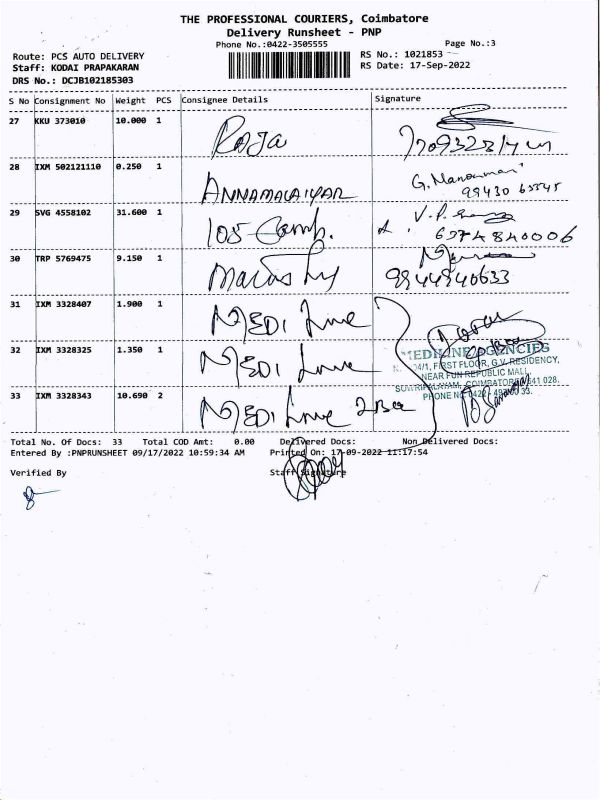 THE PROFESSIONAL COURIERS, Coimbatore
Delivery Runsheet - PNP
Phone No.:0422-3505555
Page No.:3
Route: PCS AUTO DELIVERY
RS No.: 1021853
Staff: KODAI PRAPAKARAN
RS Date: 17-Sep-2022
DRS No.: DCJB102185303
S No Consignment No Weight PCS Consignee Details Signature
27 KKU 373010 10.000 1 Raja
28 IXM 502121110 0.250 1 ANNAMALAIYAR
99430
29 SVG 4558102 31.600 1 V.P.
6374840006
30 TRP 5769475 9.150 1
9944940633
31 IXM 3328407 1.900 1 MEDI Line
32 IXM 3328325 1.350 1 MEDI Line
MEDILINE AGENCIES
FIRST FLOOR, G.V. RESIDENCY,
NEAR FUN REPUBLIC MALL,
COIMBATORE 641 028.
PHONE NO
33 IXM 3328343 10.690 2 MEDI Line
Total No. Of Docs: 33 Total COD Amt: 0.00 Delivered Docs: Non Delivered Docs:
Entered By :PNPRUNSHEET 09/17/2022 10:59:34 AM Printed On: 17-09-2022 11:17:54
Verified By Staff Signature